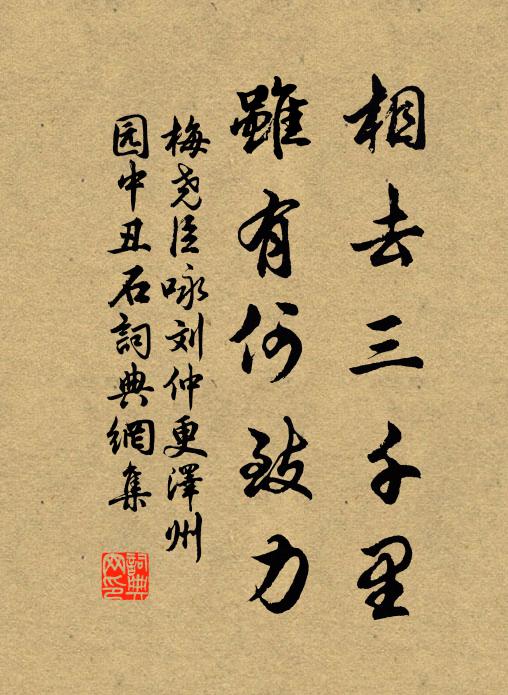 相去三千里
雖有何致力
梅尧臣咏刘仲更澤州
园中丑石詞典網集
詞典
网印